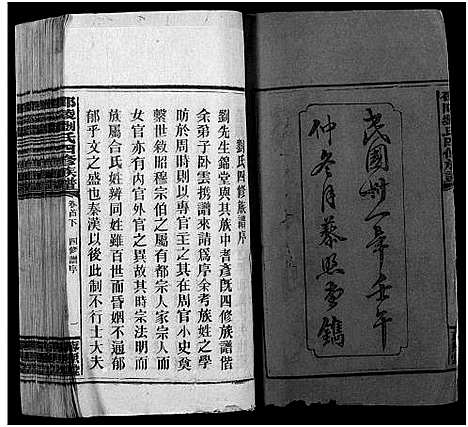 民國卅一年壬午
仲冬月藜照堂鐫
劉氏四修族譜序
劉先生錦堂與其族中耆彥既四修族譜偕
余弟子卧雲携譜來請為序余考族姓之學
昉於周時則以專官主之其在周官小史奠
繫世敘昭穆宗伯之屬有都宗人家宗人而
女官亦有內宗外宗之異故其時宗法明而
族屬合氏姓辨同姓雖百世而昏姻不通郁
郁乎文之盛也秦漢以後此制不行士大夫
劉氏四修族譜
卷首下
四修譜序
一